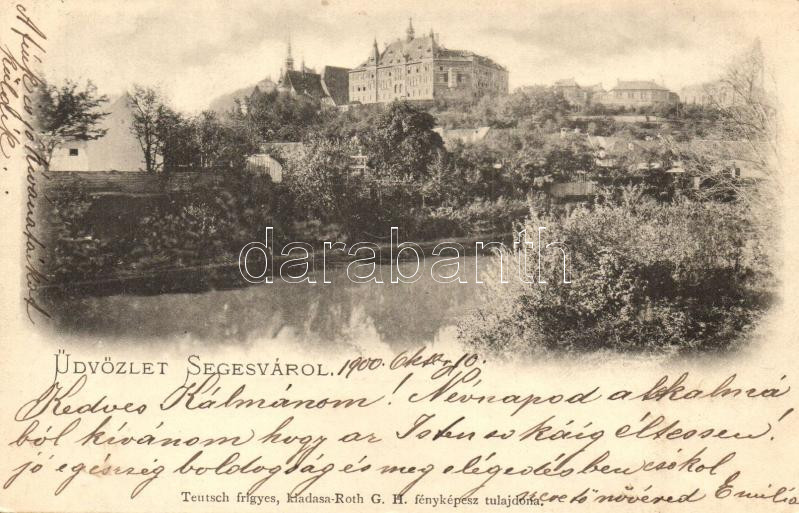 A fiuk ... kívánatai
küldik.
darabanth
ÜDVÖZLET SEGESVÁROL. 1900. Okt. 10.
Kedves Kálmánom! Névnapod alkalmá
ból kívánom hogy az Isten sokáig éltessen!
jó egészség boldogság és meg elégedésben csókol
szerető nővéred Emilia
Teutsch frigyes, kiadasa-Roth G. H. fényképesz tulajdona.